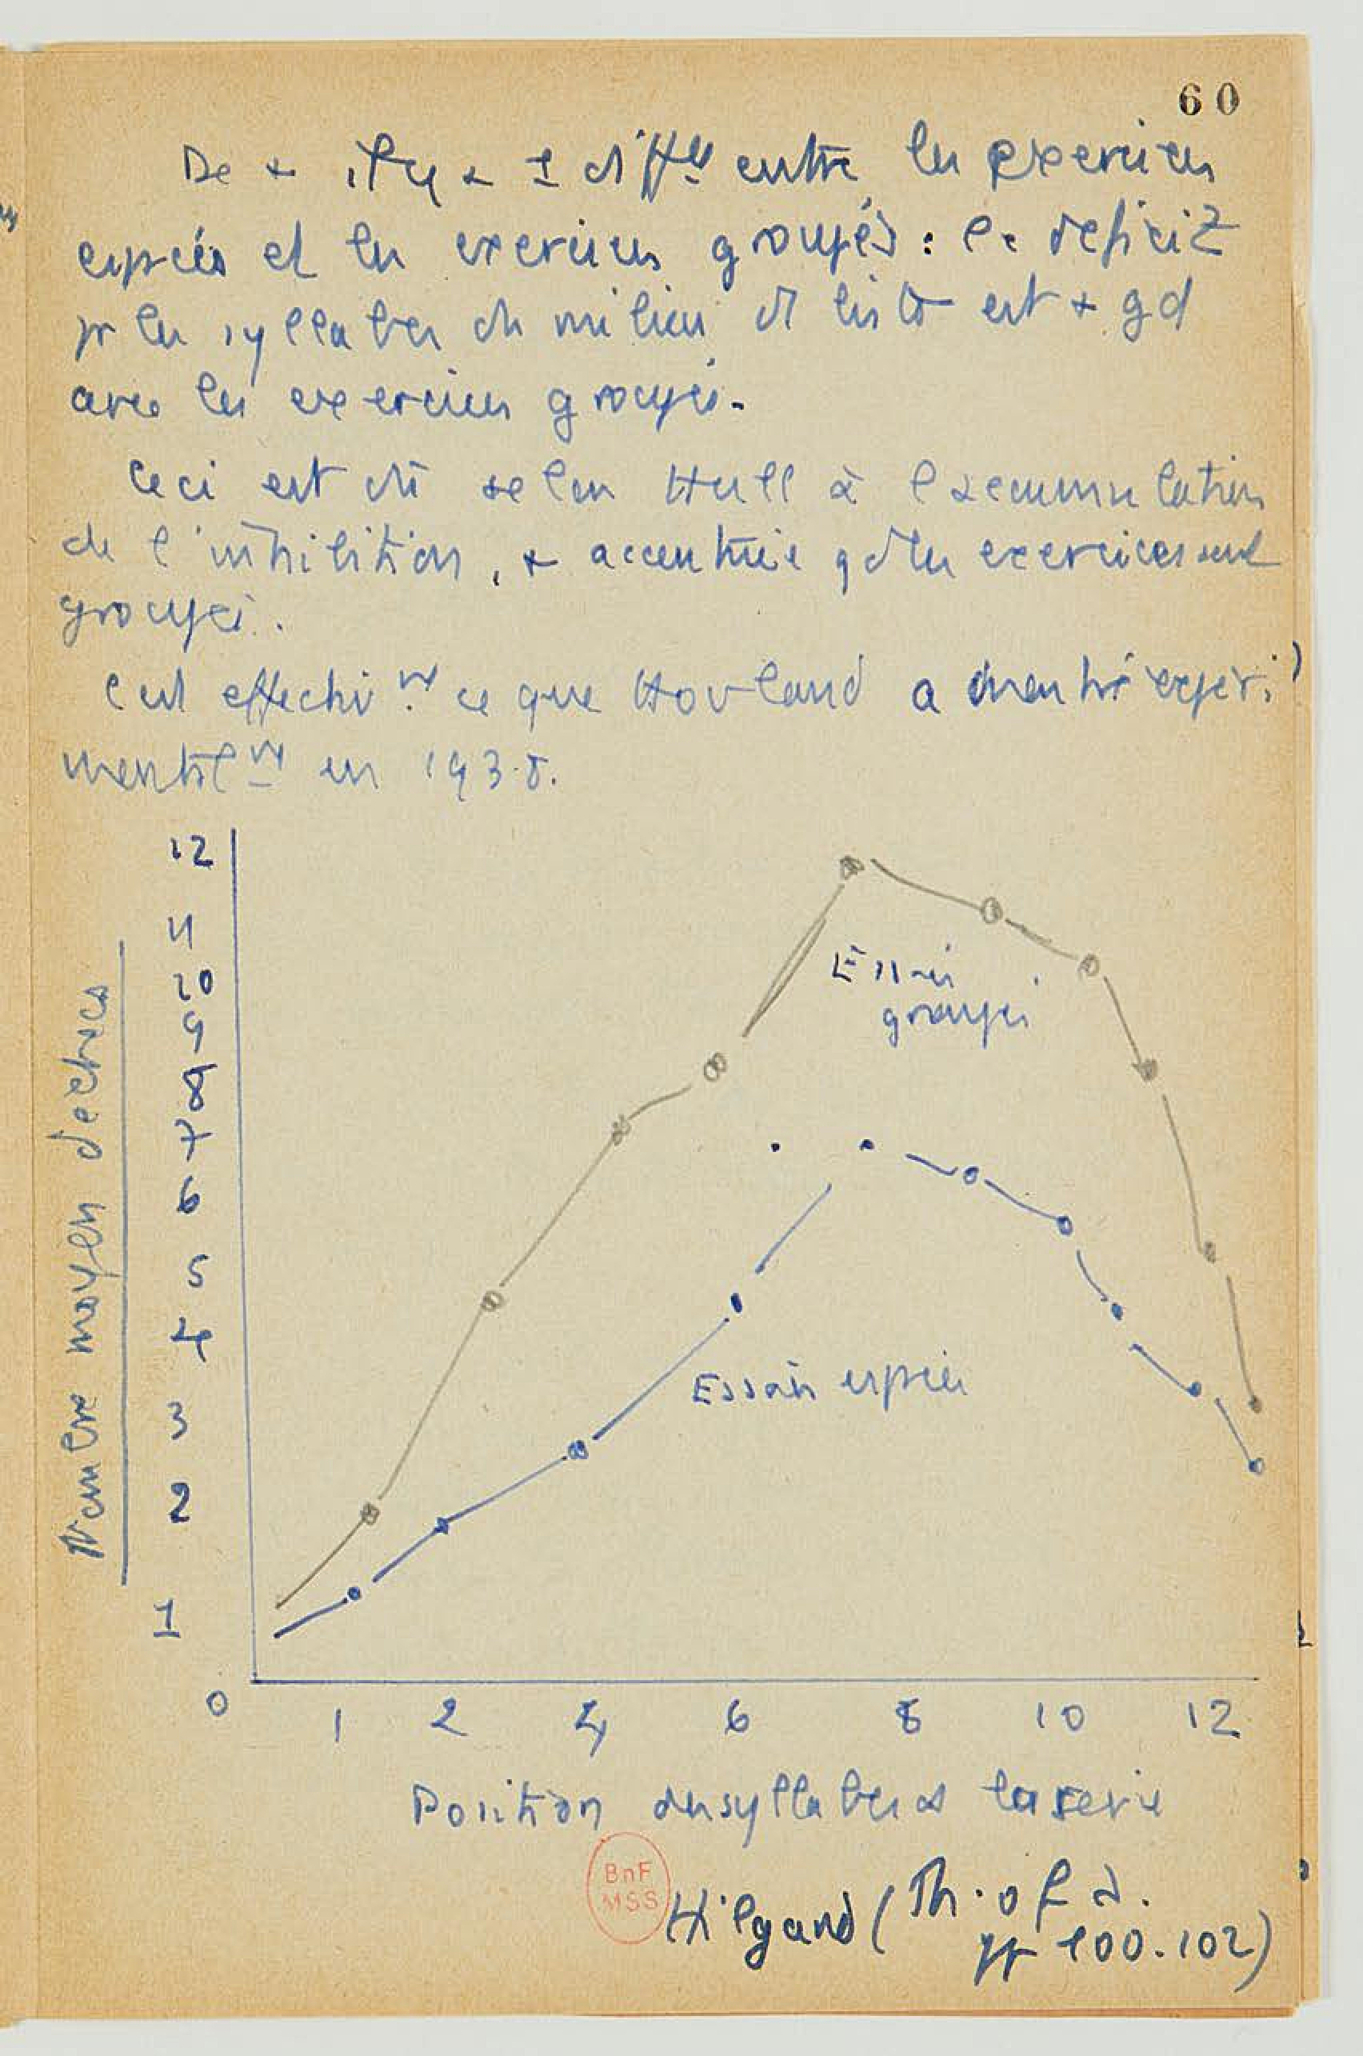 60
De + il y a 1 diff<sup>ce</sup> entre les exercices
espacés et les exercices groupés : le deficit
pr les syllabes du milieu d liste est + gd
avec les exercices groupés.
Ceci est dû selon Hull à l'accumulation
de l'inhibition, + accentuée qd les exercices sont
groupés.
C'est effectiv<sup>nt</sup> ce que Hovland a montré expéri
mental<sup>nt</sup> en 1938.
12
11
10
9
8
7
6
5
4
3
2
1
0
Nombre moyen d'echecs
Essais
groupés
Essais espacés
1 2 4 6 8 10 12
Position des syllabes ds la serie
BnF
MSS
Hilgard (Th. of L.
pp 100.102)